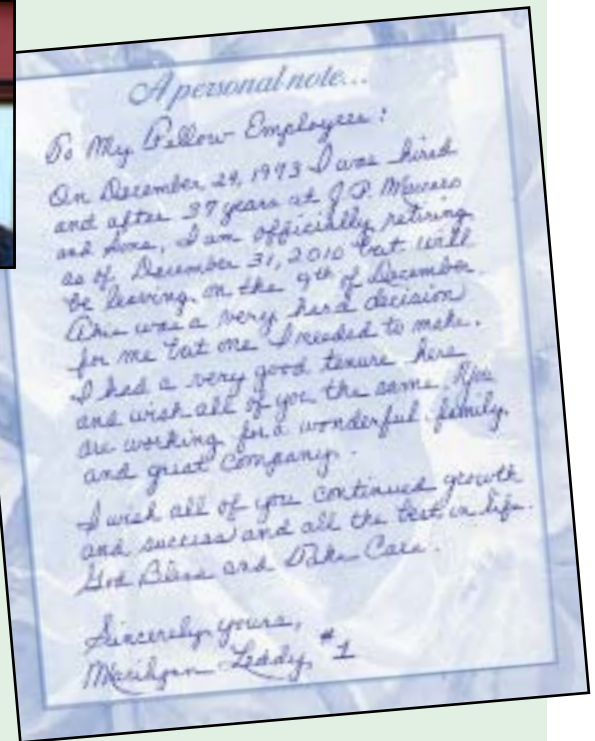 A personal note...
To My Fellow Employees:
On December 24, 1973 I was hired
and after 37 years at J.P. Mascaro
and Sons, I am officially retiring
as of December 31, 2010 but will
be leaving on the 9th of December.
This was a very hard decision
for me but one I needed to make.
I had a very good tenure here
and wish all of you the same. You
are working for a wonderful family
and great company.
I wish all of you continued growth
and success and all the best in life.
God Bless and Take Care.
Sincerely yours,
Marilynn Leddy #1